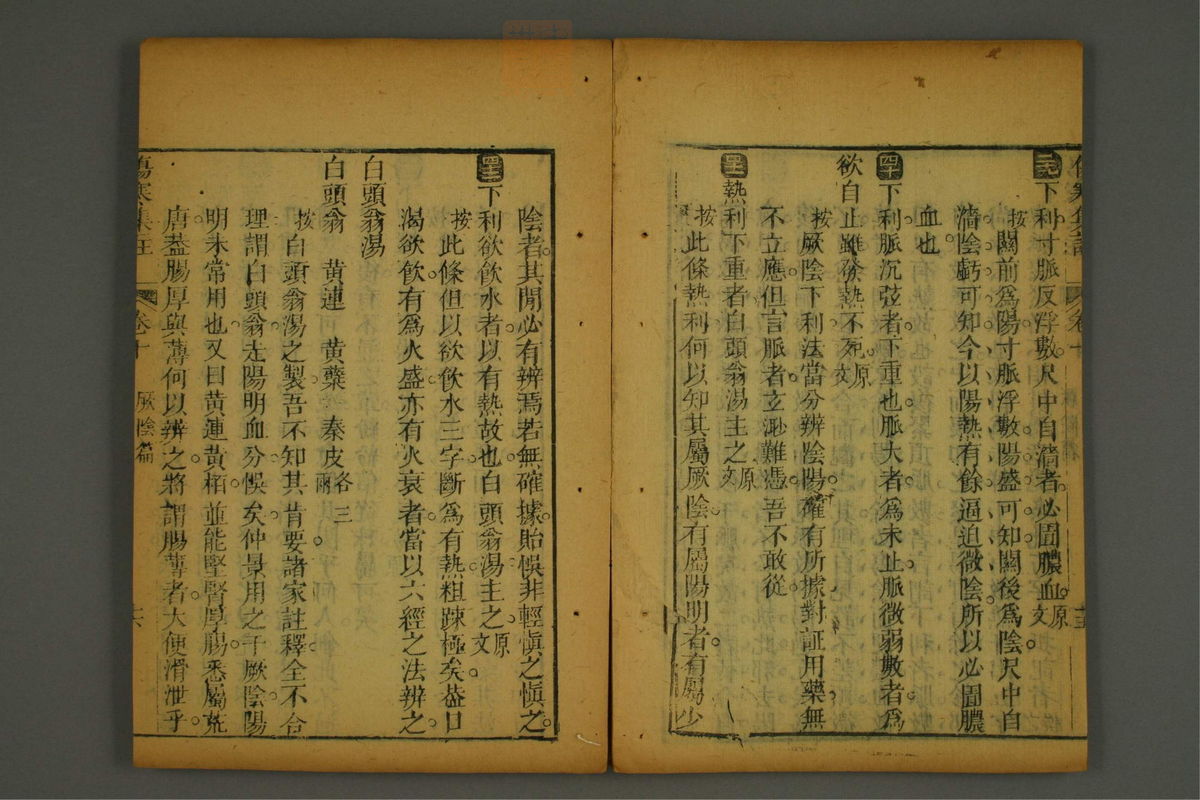 下利寸脈反浮數尺中自濇者必圊膿血原文
按關前爲陽寸脈浮數陽盛可知關後爲陰尺中自
濇陰虧可知今以陽熱有餘過迫微陰所以必圊膿
血也
四十下利脈沉弦者下重也脈大者爲未止脈微弱數者爲
欲自止雖發熱不死原文
按厥陰下利法當分辨陰陽確有所據對証用藥無
不立應但言脈者立渺難憑吾不敢從
熱利下重者白頭翁湯主之原文
按此條熱利何以知其屬厥陰有屬陽明者有屬少
陰者其閒必有辨焉若無確據貽悞非輕愼之愼之
下利欲飲水者以有熱故也白頭翁湯主之原文
按此條但以欲飲水三字斷爲有熱粗踈極矣葢口
渴欲飲有爲火盛亦有火衰者當以六經之法辨之
白頭翁湯
白頭翁 黃連 黃蘗 秦皮各三兩
按白頭翁湯之製吾不知其肯要諸家註釋全不合
理謂白頭翁走陽明血分悞矣仲景用之于厥陰陽
明未常用也又曰黃連黃栢並能堅腎厚腸悉屬荒
唐葢腸厚與薄何以辨之將謂腸薄者大便滑泄乎
傷寒集註 卷十 厥陰篇 六